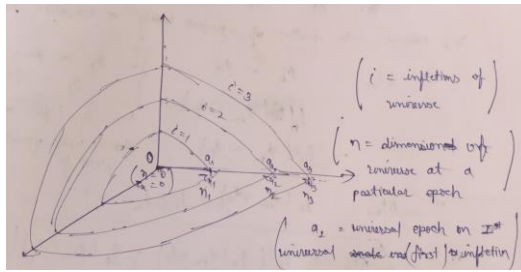 i = 3
i = 2
i = 1
O
a₁
a₂
a₃
n₁
n₂
n₃
( i = infletions of
universe )
( n = dimensions of
universe at a
particular epoch )
( a₁ = universal epoch on Iˢᵗ
universal (first) infletion )